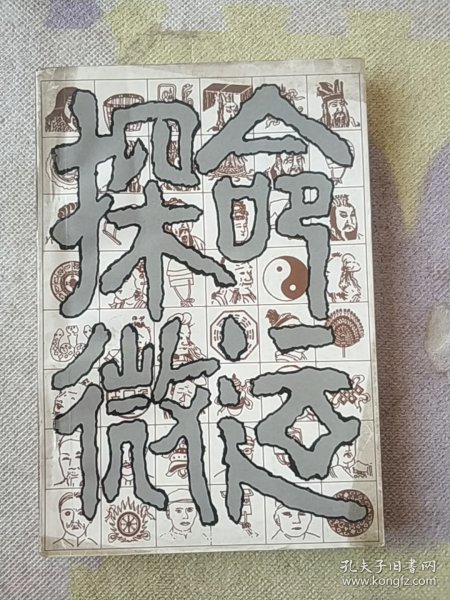 命运
探微
孔夫子旧书网
www.kongfz.com